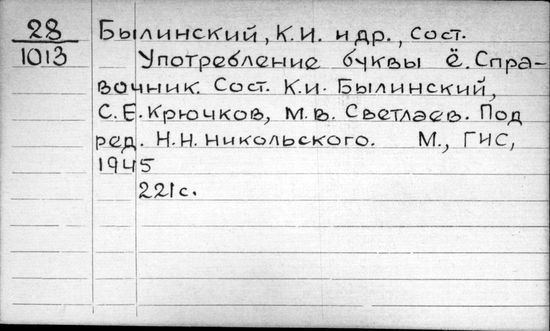 28 Былинский, К.И. и др., сост.
1013 Употребление буквы ё. Спра-
вочник. Сост. К.И. Былинский,
С.Е. Крючков, М.В. Светлаев. Под
ред. Н.Н. Никольского. М., ГИС,
1945
221с.